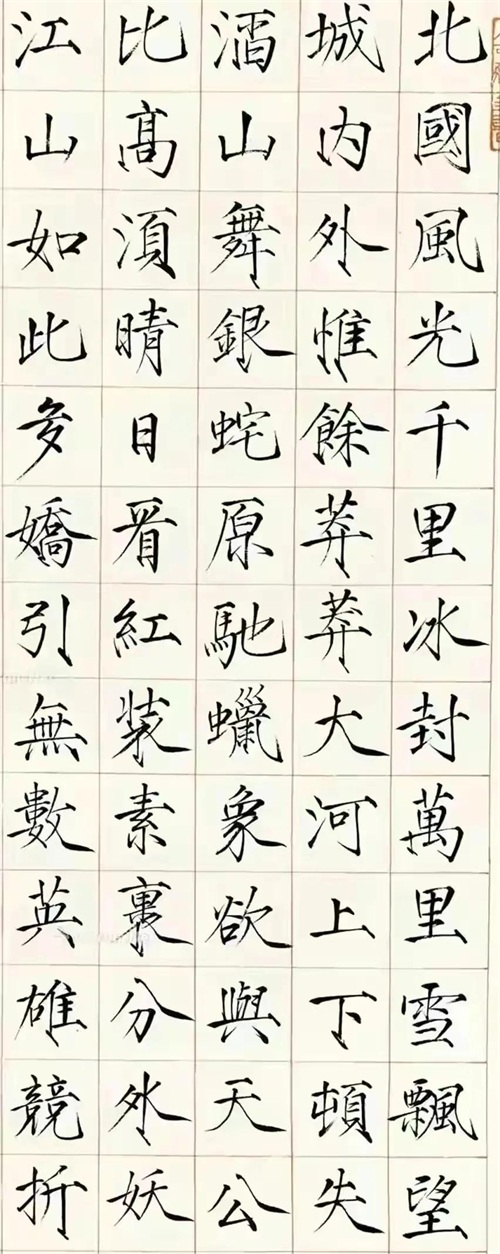 北國風光千里冰封萬里雪飄望
城内外惟餘莽莽大河上下頓失
滔山舞銀蛇原馳蠟象欲與天公
比髙湏晴日看紅裝素裹分外妖
江山如此多嬌引無數英雄競折